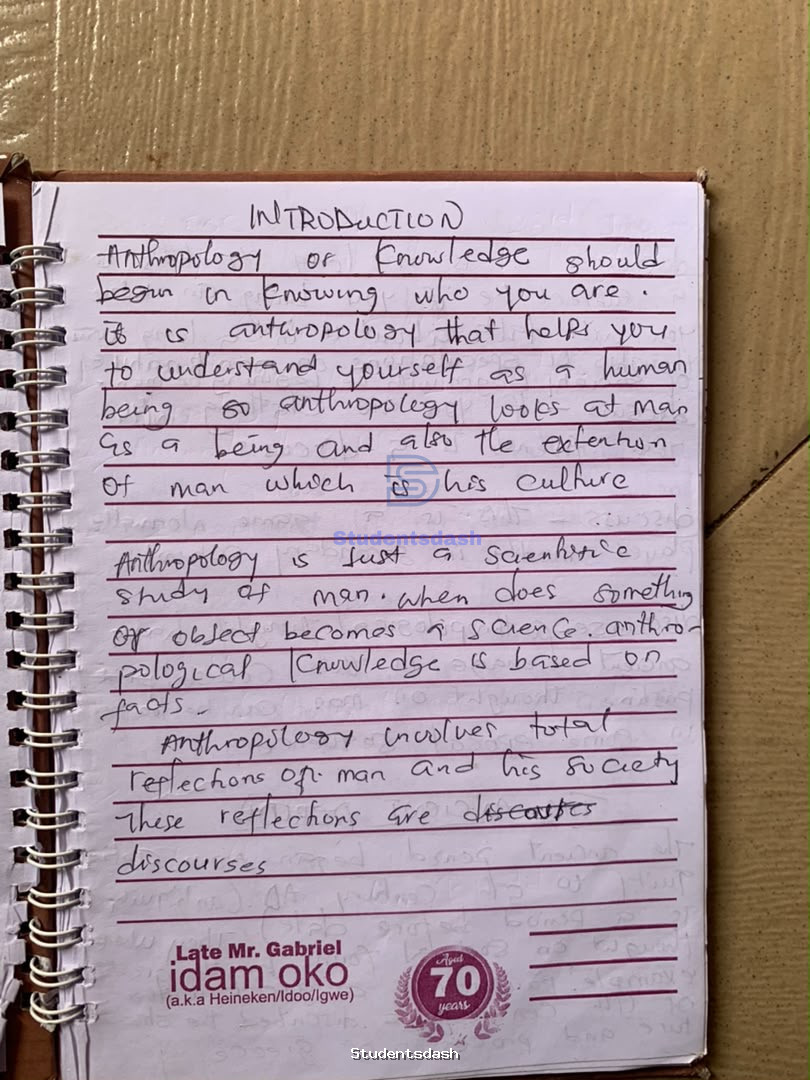 INTRODUCTION
Anthropology or Knowledge should
begin in knowing who you are.
it is anthropology that helps you
to understand yourself as a human
being so anthropology looks at man
as a being and also the extention
of man which is his culture
Studentsdash
Anthropology is just a scientific
study of man. when does something
or object becomes a science. anthro-
pological Knowledge is based on
facts.
Anthropology involves total
reflections of man and his society
These reflections are discourses
discourses
Late Mr. Gabriel
idam oko
(a.k.a Heineken/Idoo/Igwe)
Aged
70
years
Studentsdash